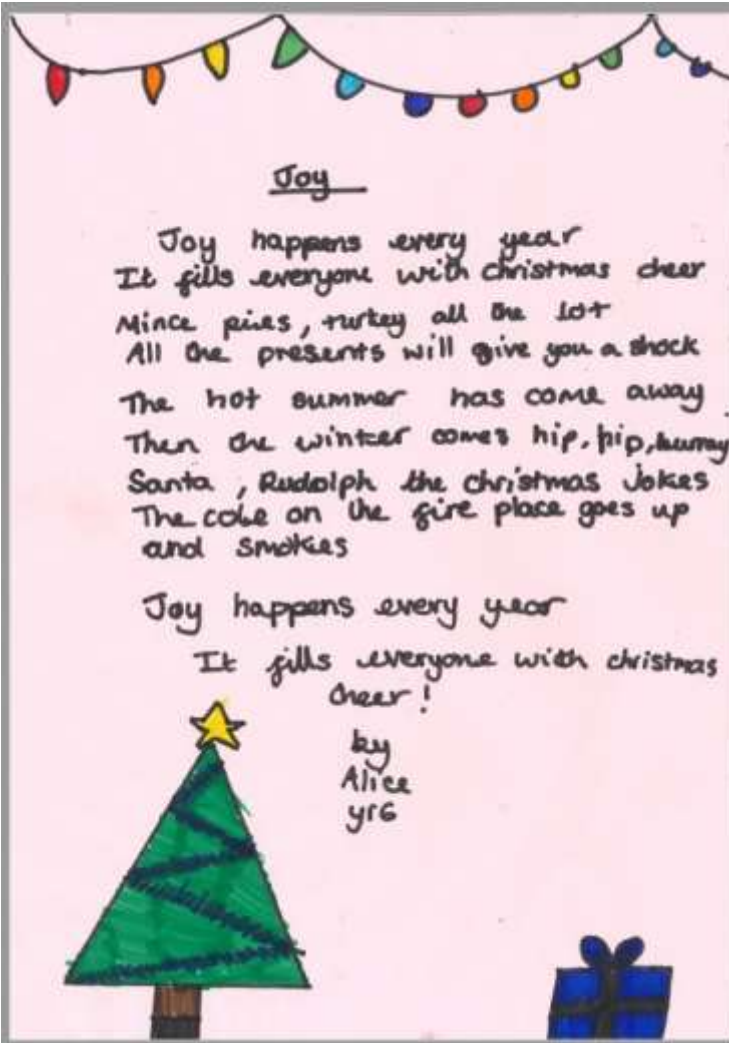 Joy
Joy happens every year
It fills everyone with christmas cheer
Mince pies, turkey all the lot
All the presents will give you a shock
The hot summer has come away
Then the winter comes hip, hip, hurray
Santa, Rudolph the christmas Jokes
The cole on the fire place goes up
and smokies
Joy happens every year
It fills everyone with christmas
cheer!
by
Alice
yr6